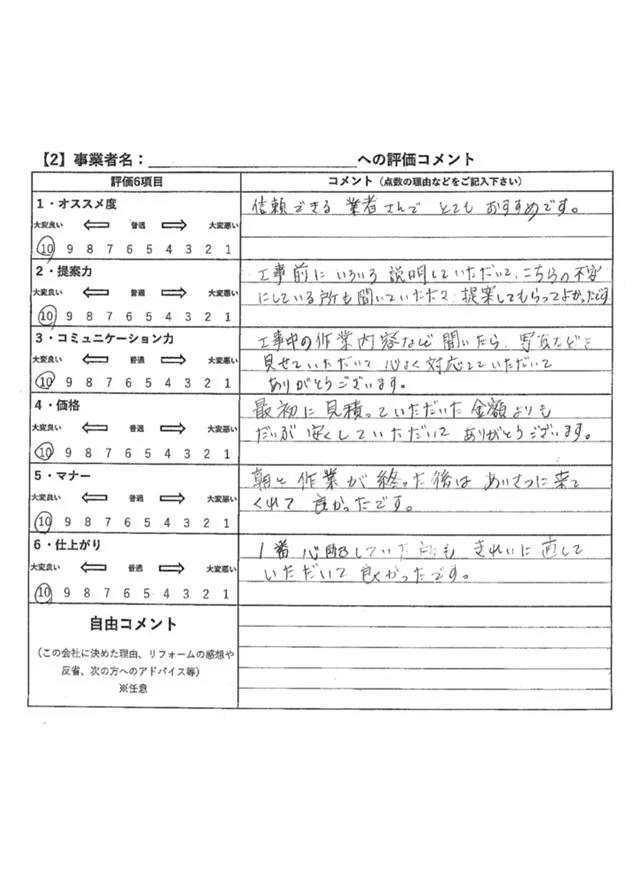 【2】事業者名：＿＿＿＿＿＿＿＿＿＿＿＿への評価コメント
評価6項目 コメント（点数の理由などをご記入下さい）
1・オススメ度
大変良い 普通 大変悪い
10 9 8 7 6 5 4 3 2 1
信頼できる 業者さんで とても おすすめです。
2・提案力
大変良い 普通 大変悪い
10 9 8 7 6 5 4 3 2 1
工事前に いろいろ 説明していただいて、こちらの不安
にしている所も聞いていただいて 提案してもらってよかったです
3・コミュニケーション力
大変良い 普通 大変悪い
10 9 8 7 6 5 4 3 2 1
工事中の作業内容など 聞いたら、写真などを
見せていただいて 心よく 対応していただいて
ありがとうございます。
4・価格
大変良い 普通 大変悪い
10 9 8 7 6 5 4 3 2 1
最初に 見積っていただいた 金額よりも
だいぶ 安くしていただいて ありがとうございます。
5・マナー
大変良い 普通 大変悪い
10 9 8 7 6 5 4 3 2 1
朝と 作業が 終った後は あいさつに来て
くれて 良かったです。
6・仕上がり
大変良い 普通 大変悪い
10 9 8 7 6 5 4 3 2 1
1番 心配していた も きれいに 直して
いただいて 良かったです。
自由コメント
（この会社に決めた理由、リフォームの感想や
反省、次の方へのアドバイス等）
※任意